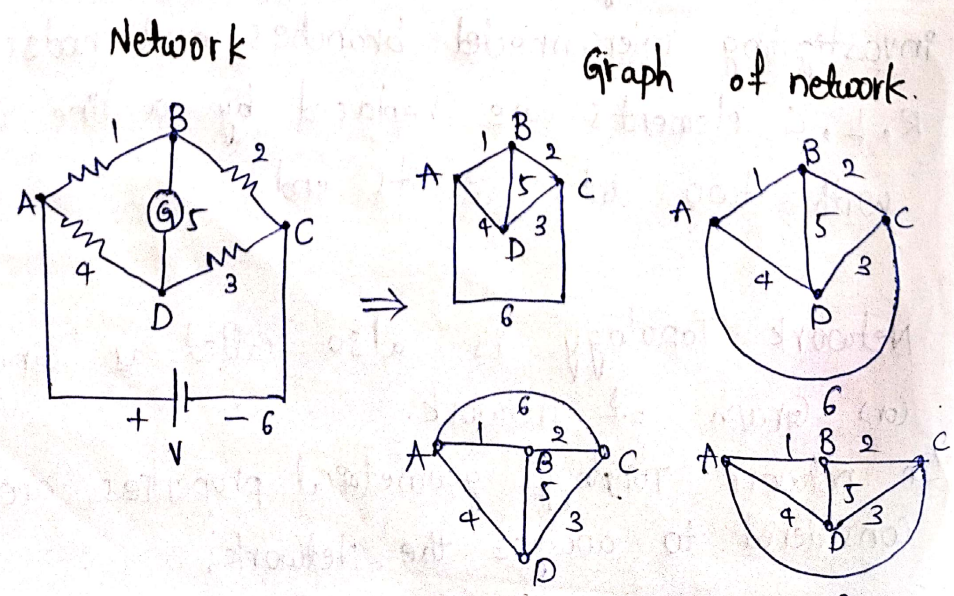 Network
Graph of network.
1 B 2
A G 5 C
4 3
D
+ − 6
V
⇒
B
1 2
A 5 C
4 3
D
6
B
1 2
A 5 C
4 3
D
6
6
1 2
A B C
5
4 3
D
A 1 B 2 C
5
4 3
D